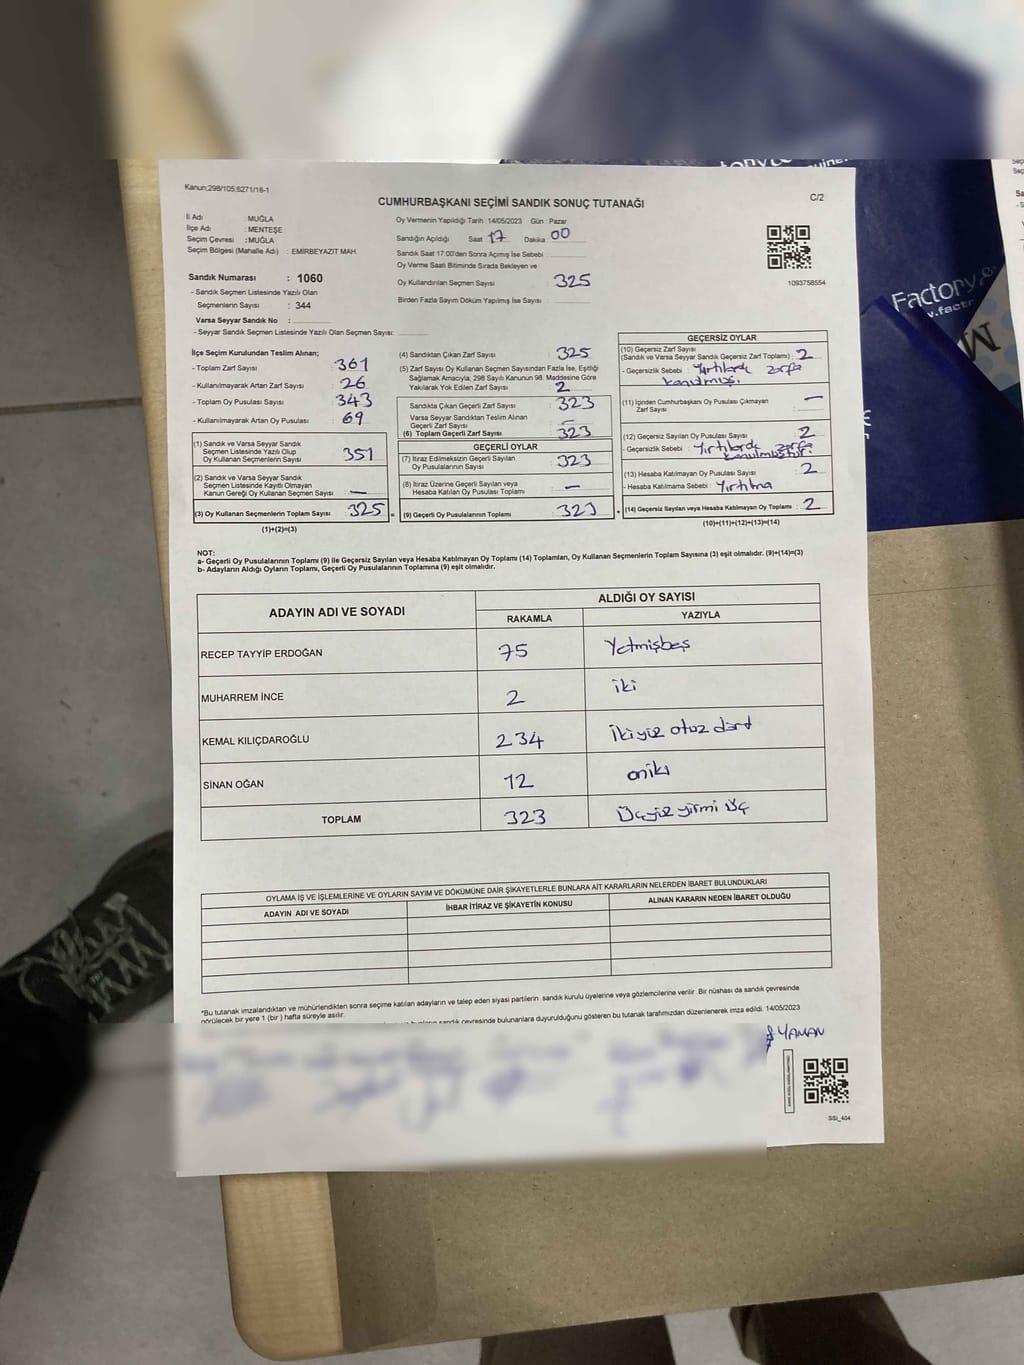 Kanun;298/105;6271/16-1
CUMHURBAŞKANI SEÇİMİ SANDIK SONUÇ TUTANAĞI
C/2
İl Adı : MUĞLA
İlçe Adı : MENTEŞE
Seçim Çevresi : MUĞLA
Seçim Bölgesi (Mahalle Adı) : EMİRBEYAZIT MAH.
Sandık Numarası : 1060
- Sandık Seçmen Listesinde Yazılı Olan
Seçmenlerin Sayısı : 344
Varsa Seyyar Sandık No :
- Seyyar Sandık Seçmen Listesinde Yazılı Olan Seçmen Sayısı:
Oy Vermenin Yapıldığı Tarih :14/05/2023 Gün : Pazar
Sandığın Açıldığı Saat : 17 Dakika : 00
Sandık Saat 17:00'den Sonra Açımış İse Sebebi :
Oy Verme Saati Bitiminde Sırada Bekleyen ve
Oy Kullandırılan Seçmen Sayısı : 325
Birden Fazla Sayım Döküm Yapılmış İse Sayısı :
1093758554
İlçe Seçim Kurulundan Teslim Alınan;
- Toplam Zarf Sayısı : 361
- Kullanılmayarak Artan Zarf Sayısı : 26
- Toplam Oy Pusulası Sayısı : 343
- Kullanılmayarak Artan Oy Pusulası : 69
(1) Sandık ve Varsa Seyyar Sandık
Seçmen Listesinde Yazılı Olup
Oy Kullanan Seçmenlerin Sayısı : 351
(2) Sandık ve Varsa Seyyar Sandık
Seçmen Listesinde Kayıtlı Olmayan
Kanun Gereği Oy Kullanan Seçmen Sayısı : —
(3) Oy Kullanan Seçmenlerin Toplam Sayısı : 325 =
(1)+(2)=(3)
(4) Sandıktan Çıkan Zarf Sayısı : 325
(5) Zarf Sayısı Oy Kullanan Seçmen Sayısından Fazla İse, Eşitliği
Sağlamak Amacıyla; 298 Sayılı Kanunun 98. Maddesine Göre
Yakılarak Yok Edilen Zarf Sayısı : 2
Sandıkta Çıkan Geçerli Zarf Sayısı : 323
Varsa Seyyar Sandıktan Teslim Alınan
Geçerli Zarf Sayısı : —
(6) Toplam Geçerli Zarf Sayısı : 323
GEÇERLİ OYLAR
(7) İtiraz Edilmeksizin Geçerli Sayılan
Oy Pusulalarının Sayısı : 323
(8) İtiraz Üzerine Geçerli Sayılan veya
Hesaba Katılan Oy Pusulası Toplamı : —
(9) Geçerli Oy Pusulalarının Toplamı : 323 +
GEÇERSİZ OYLAR
(10) Geçersiz Zarf Sayısı
(Sandık ve Varsa Seyyar Sandık Geçersiz Zarf Toplamı) : 2
- Geçersizlik Sebebi : Yırtılarak zarfa
konulmuş.
(11) İçinden Cumhurbaşkanı Oy Pusulası Çıkmayan
Zarf Sayısı : —
(12) Geçersiz Sayılan Oy Pusulası Sayısı : 2
- Geçersizlik Sebebi : Yırtılarak zarfa
konulmuştur.
(13) Hesaba Katılmayan Oy Pusulası Sayısı : 2
- Hesaba Katılmama Sebebi : Yırtılma
(14) Geçersiz Sayılan veya Hesaba Katılmayan Oy Toplamı : 2
(10)+(11)+(12)+(13)=(14)
NOT:
a- Geçerli Oy Pusulalarının Toplamı (9) ile Geçersiz Sayılan veya Hesaba Katılmayan Oy Toplamı (14) Toplamları, Oy Kullanan Seçmenlerin Toplam Sayısına (3) eşit olmalıdır. (9)+(14)=(3)
b- Adayların Aldığı Oyların Toplamı, Geçerli Oy Pusulalarının Toplamına (9) eşit olmalıdır.
ADAYIN ADI VE SOYADI
ALDIĞI OY SAYISI
RAKAMLA YAZIYLA
RECEP TAYYİP ERDOĞAN 75 Yetmişbeş
MUHARREM İNCE 2 iki
KEMAL KILIÇDAROĞLU 234 İkiyüz otuz dört
SİNAN OĞAN 12 oniki
TOPLAM 323 Üçyüz yirmi üç
OYLAMA İŞ VE İŞLEMLERİNE VE OYLARIN SAYIM VE DÖKÜMÜNE DAİR ŞİKAYETLERLE BUNLARA AİT KARARLARIN NELERDEN İBARET BULUNDUKLARI
ADAYIN ADI VE SOYADI İHBAR İTİRAZ VE ŞİKAYETİN KONUSU ALINAN KARARIN NEDEN İBARET OLDUĞU
"Bu tutanak imzalandıktan ve mühürlendikten sonra seçime katılan adayların ve talep eden siyasi partilerin sandık kurulu üyelerine veya gözlemcilerine verilir. Bir nüshası da sandık çevresinde
görülecek bir yere 1 (bir ) hafta süreyle asılır.
sandık çevresinde bulunanlara duyurulduğunu gösteren bu tutanak tarafımızdan düzenlenerek imza edildi. 14/05/2023
YAMAN
SSI_404
Factory
w.factr
M